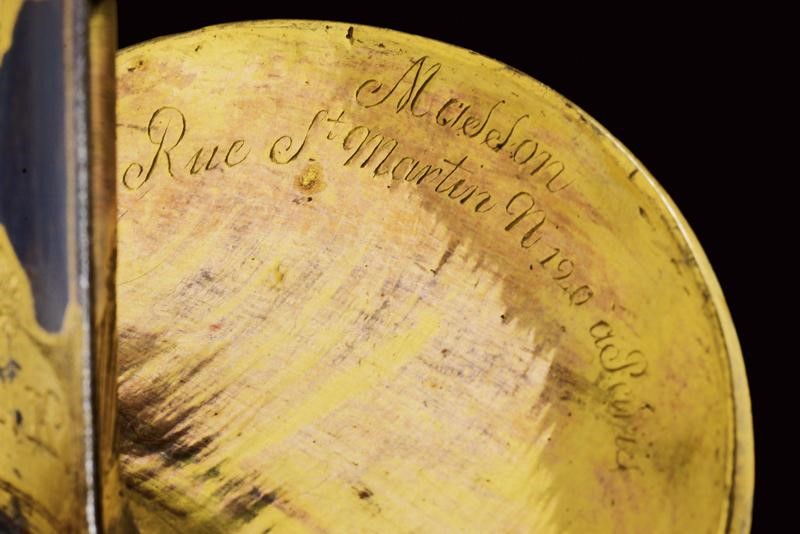 Masson
Rue St Martin N. 120 a Paris